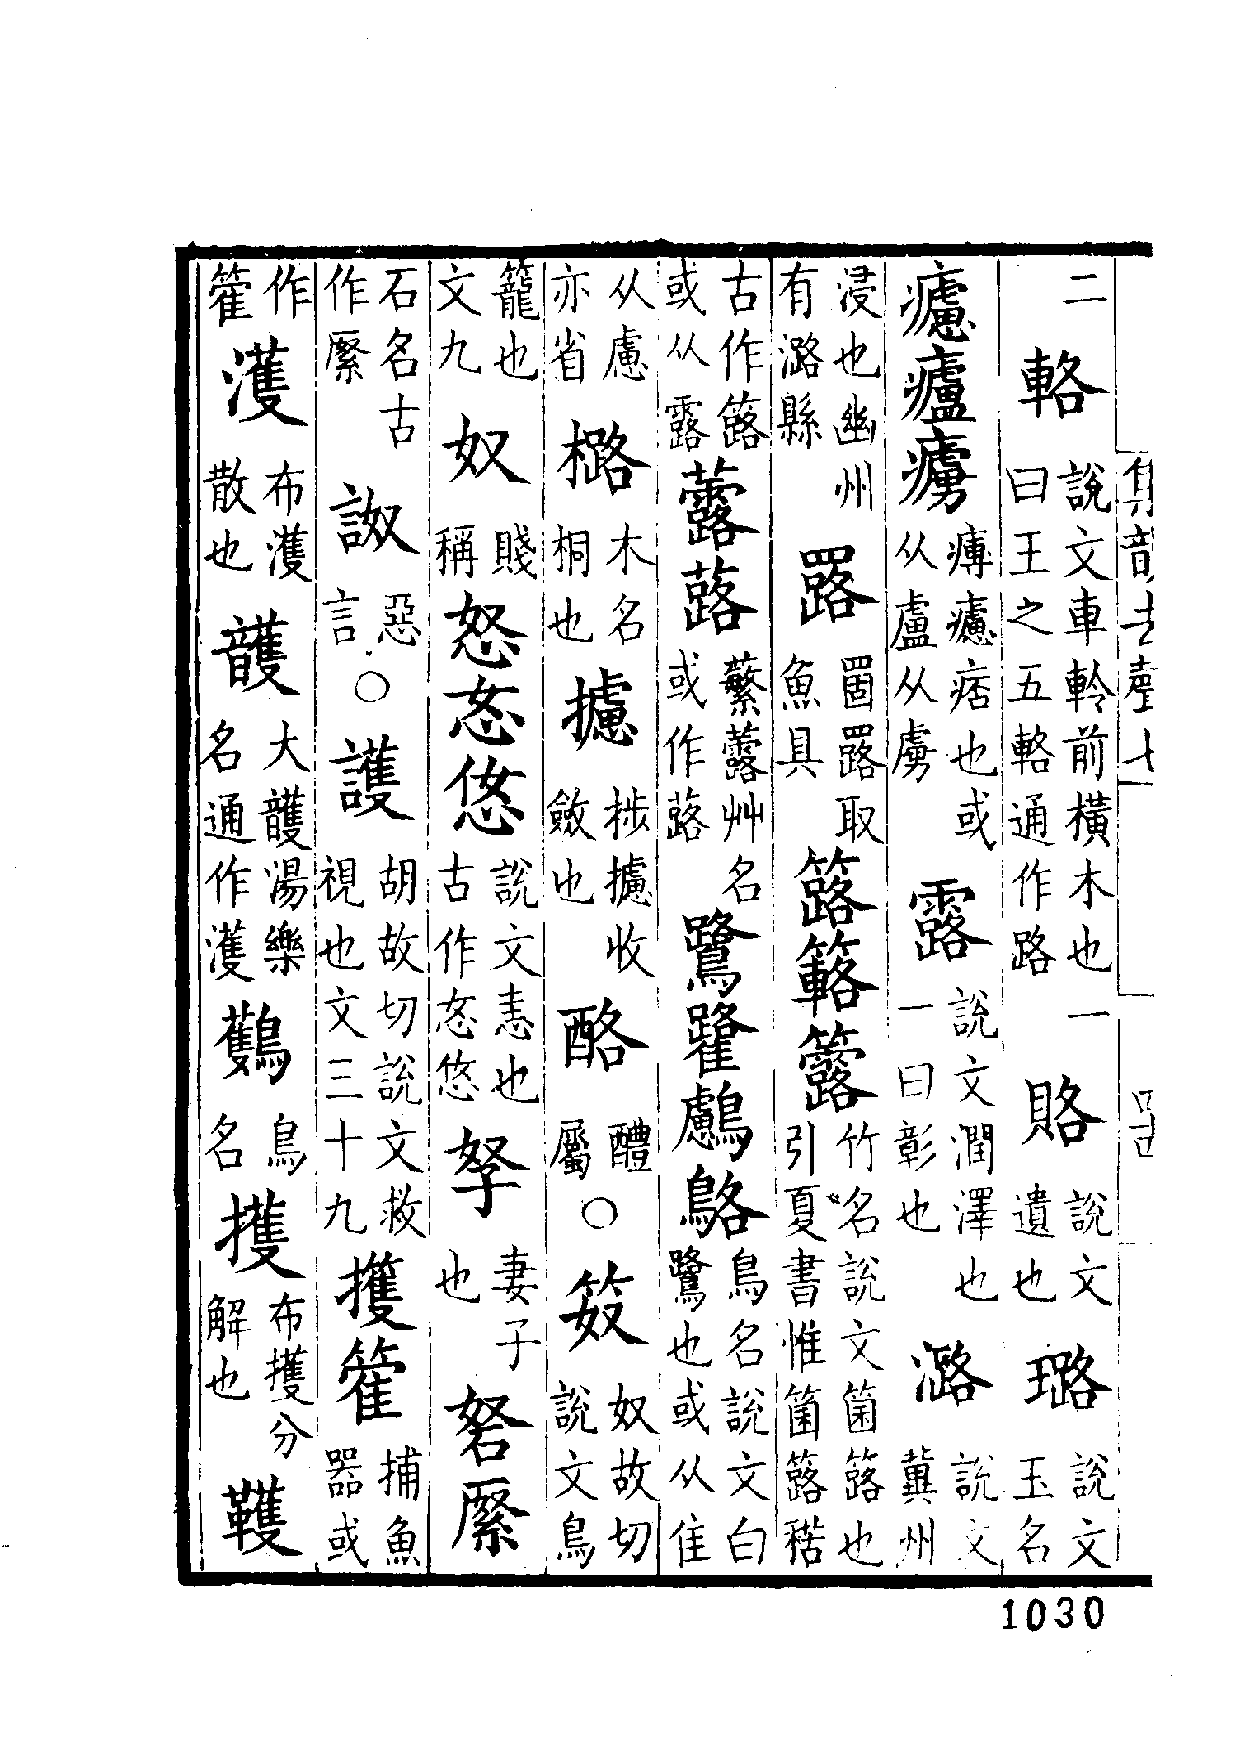 二輅說文車軨前橫木也一曰王之五輅通作路賂說文遺也璐說文玉名
痞也或从盧从虜露說文潤澤也一曰彰也潞說文冀州
浸也幽州有潞縣取魚具簬簵竹名說文箘簬也引夏書惟箘簬楛
古作簬或从露虂蕗蘩虂艸名或作蕗鷺鳥名說文白鷺也或从隹
从慮亦省㯝木名桐也攄捗攄收斂也酪醴屬○笯奴故切說文鳥
籠也文九奴賤稱怒㣽說文恚也古作㣽孥妻子也砮
石名古作詉惡言○護胡故切說文救視也文三十九擭籗捕魚器或
作籗濩布濩散也頀大頀湯樂名通作濩鸌鳥名擭布擭分解也韄
集韻去聲七
1030